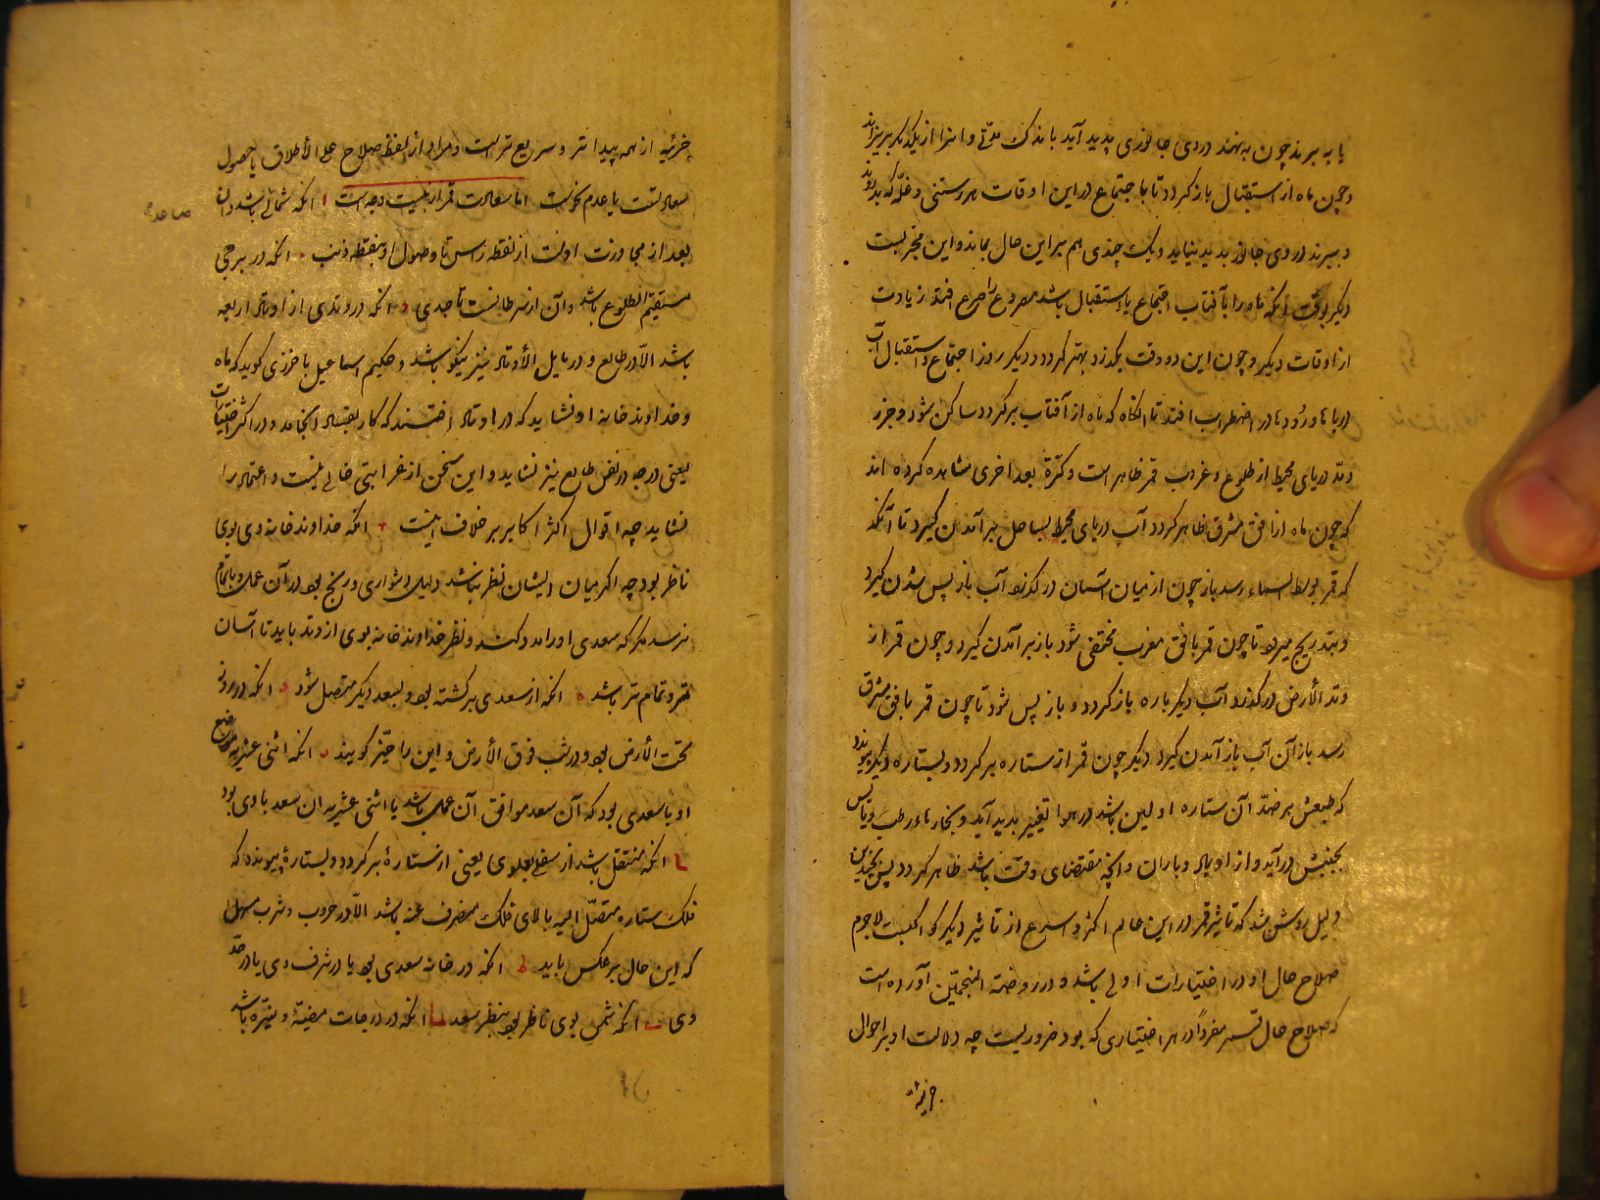 یا به برند چون به نهند در وی جانوری پدید آید باندک مدتی و انرا از یکدیگر بریزاند
و چون ماه از استقبال باز کردد تا باجتماع در این اوقات هر رستنی و غله که بدروند
و ببرند در وی جانور پدید نیاید و یک چندی هم بر این حال بماند و این مجربست
دیگر بوقت آنکه ماه را با آفتاب اجتماع یا استقبال باشد مصروع را صرع افتد زیادت
از اوقات دیگر و چون این دو وقت بگذرد بهتر کردد و دیگر روز اجتماع و استقبال آب
دریاها و رودها در اضطراب افتد تا انگاه که ماه از آفتاب برکردد ساکن شود و جزر
و مد دریای محیط از طلوع و غروب قمر ظاهر است و کرة بعد اخری مشاهده کرده اند
که چون ماه از افق مشرق ظاهر کردد آب دریای محیط بساحل بر آمدن کیرد تا آنکه
که قمر بوسط السماء رسد باز چون از میان آسمان در کذرد آب باز پس شدن کیرد
و بتدریج میرود تا چون قمر بافق مغرب مختفی شود باز بر آمدن کیرد و چون قمر از
وتد الأرض در کذرد آب دیگر باره باز کردد و باز پس شود تا چون قمر بافق مشرق
رسد باز آن آب باز آمدن کیرد دیگر چون قمر از ستاره برکردد و بستاره دیگر پیوندد
که طبعش بر ضد آن ستاره اولین باشد در هوا تغییر پدید آید و بخارهاء رطب و یابس
بجنبش در آید و از او باد و باران و انچه مقتضای وقت باشد ظاهر کردد پس بچندین
دلیل روشن شد که تاثیر قمر در این عالم اکثر و اسرع از تاثیر دیگر کواکبست لاجرم
صلاح حال او در اختیارات اولی باشد و در روضة المنجمین آورده است
که صلاح حال قمر مفرداً در هر اختیاری که بود ضروریست چه دلالت او بر احوال
جزئیه
جزئیه از همه پیداتر و سریع تر است و مراد از لفظ صلاح علی الأطلاق یا حصول
سعادتست یا عدم نحوست اما سعادت قمر از بیست وجه است ا انکه شمالی باشد و ان
صاعد
بعد از مجاوزت اوست از نقطه راس تا وصول او بنقطه ذنب انکه در برجی
مستقیم الطلوع باشد و آن از سرطانست تا جدی انکه در وتدی از اوتاد اربعه
باشد الا در طالع و در مایل الأوتاد نیز نیکو باشد و حکیم اسماعیل باخرزی کوید که ماه
و خداوند خانه او نشاید که در اوتاد افتند که کار بفساد انجامد و در اکثر اختیارات
یعنی درجه در نفس طالع نیز نشاید و این سخن از غرابتی خالی نیست و اعتماد را
نشاید چه اقوال اکثر اکابر بر خلاف اینست انکه خداوند خانه وی بوی
ناظر بود چه اکر میان ایشان نظر نباشد دلیل دشواری و رنج بود در آن عمل و باتمام
نرسد مکر که سعدی او را مدد کند و نظر خداوند خانه بوی از وتد باید تا آسان
تر و تمام تر باشد ه انکه از سعدی برکشته بود و بسعد دیگر متصل شود انکه در روز
تحت الأرض بود و در شب فوق الأرض و این را حیز کویند انکه اثنی عشریه موضع
او با سعدی بود که آن سعد موافق آن عمل باشد یا اثنی عشریه ان سعد با وی بود
انکه منتقل باشد از سفلی بعلوی یعنی از ستارهٔ برکردد و بستارهٔ پیوندد که
فلک ستاره متصل الیه بالای فلک منصرف عنه باشد الا در حروب و شرب مسهل
که این حال بر عکس باید ط انکه در خانه سعدی بود یا در شرف وی یا در حد
وی انکه شمس بوی ناظر بود بنظر سعد انکه در درجات مضیئه و نیره باشد